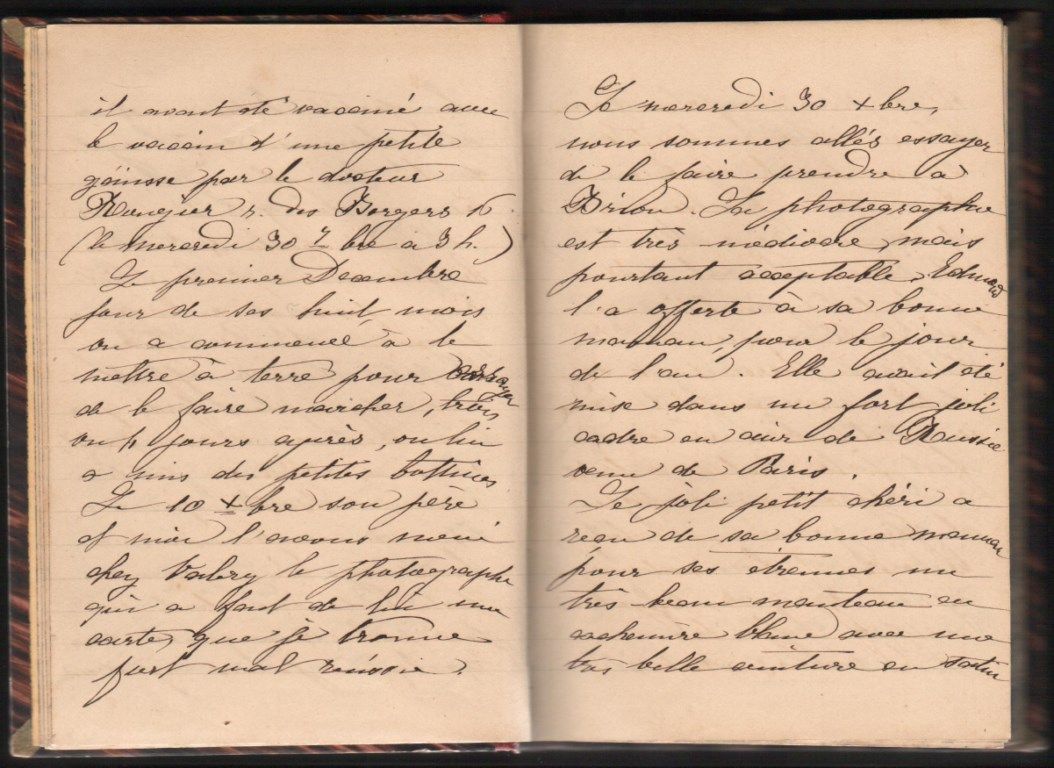 il avait été vacciné avec
le vaccin d'une petite
génisse par le docteur
Rougier r. des Bergers
(le mercredi 30 7bre à 3 h.)
Le premier Decembre
jour de ses huit mois
on a commencé à le
mettre à terre pour essayer
de le faire marcher, trois
ou 4 jours après, on lui
a mis des petites bottines
Le 10 Xbre son père
et moi l'avons mené
chez Valery le photographe
qui a fait de lui une
carte, que je trouve
fort mal réussie.
Le mercredi 30 Xbre,
nous sommes allés essayer
de le faire prendre à
Brion. La photographie
est très médiocre, mais
pourtant acceptable, Edmond
l'a offerte à sa bonne
maman, pour le jour
de l'an. Elle avait été
mise dans un fort joli
cadre en cuir de Russie
venu de Paris.
Le joli petit chéri a
reçu de sa bonne maman
pour ses étrennes un
très beau manteau en
cachemire blanc avec une
très belle ceinture en satin